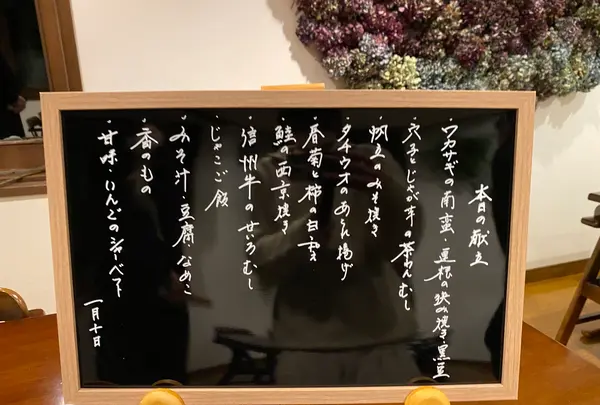 本日の献立
・ワカサギの南蛮・蓮根の挟み焼き・黒豆
・穴子とじゃが芋の茶わんむし
・帆立のみそ焼き
・タチウオのあられ揚げ
・春菊と柿の白
・鮭の西京焼き
・信州牛のせいろむし
・じゃこご飯
・みそ汁・豆腐・なめこ
・香のもの
・甘味・りんごのシャーベット
一月十日